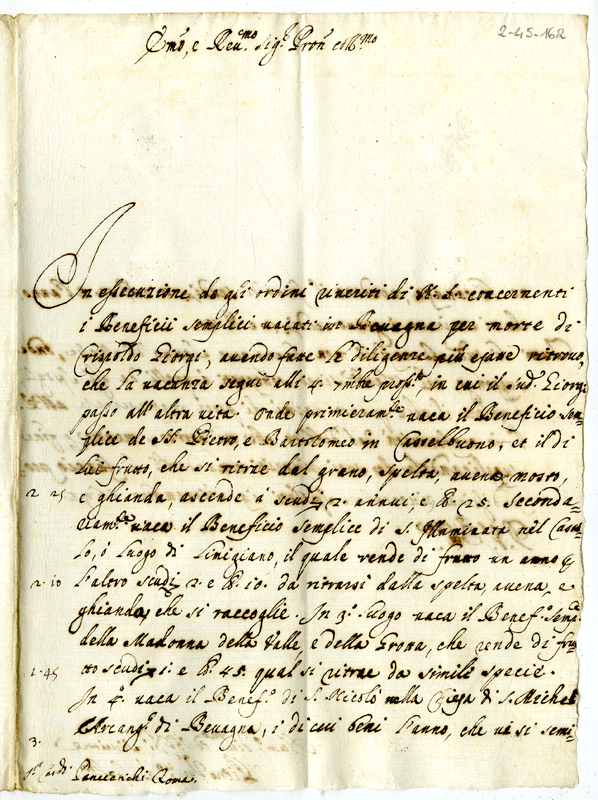 2-45-162
Emo, e Reu.mo Sig.r Pron colmo
In essecuzione de gli ordini riueriti di N. S. concernenti
i Beneficii semplici uacati in Beuagna per morte di
Crispoldo Giorgi, auendo fatte le diligenze più esatte ritrouo,
che la uacanza seguì alli 4. 7mbre pross.o, in cui il sud.o Giorgi
passò all'altra uita. Onde primieram.te uaca il Beneficio sem=
plice de SS. Pietro, e Bartolomeo in Castelbuono, et il di
lui frutto, che si ritrae dal grano, spelta, auena mosto,
2 25 e ghianda, ascende à scudi 2. annui, e b. 25. Seconda=
riam.te uaca il Beneficio semplice di S. Illuminata nel Castel=
lo, ò luogo di Limigiano, il quale rende di frutto un anno p
2.10 l'altro scudi 2. e b. 10. da ritrarsi dalla spelta, auena, e
ghianda, che si raccoglie. In 3.o luogo uaca il Benef.o semp.e
della Madonna della Valle, e della Grona, che rende di frut=
1.45 to scudi 1. e b. 45. qual si ritrae da simili specie.
In 4.o uaca il Benef.o di S. Nicolò nella Chiesa di S. Michel
Arcang.o di Beuagna, i di cui beni l'anno, che ui si semi=
3.
S.r Card. Panciatichi Roma.